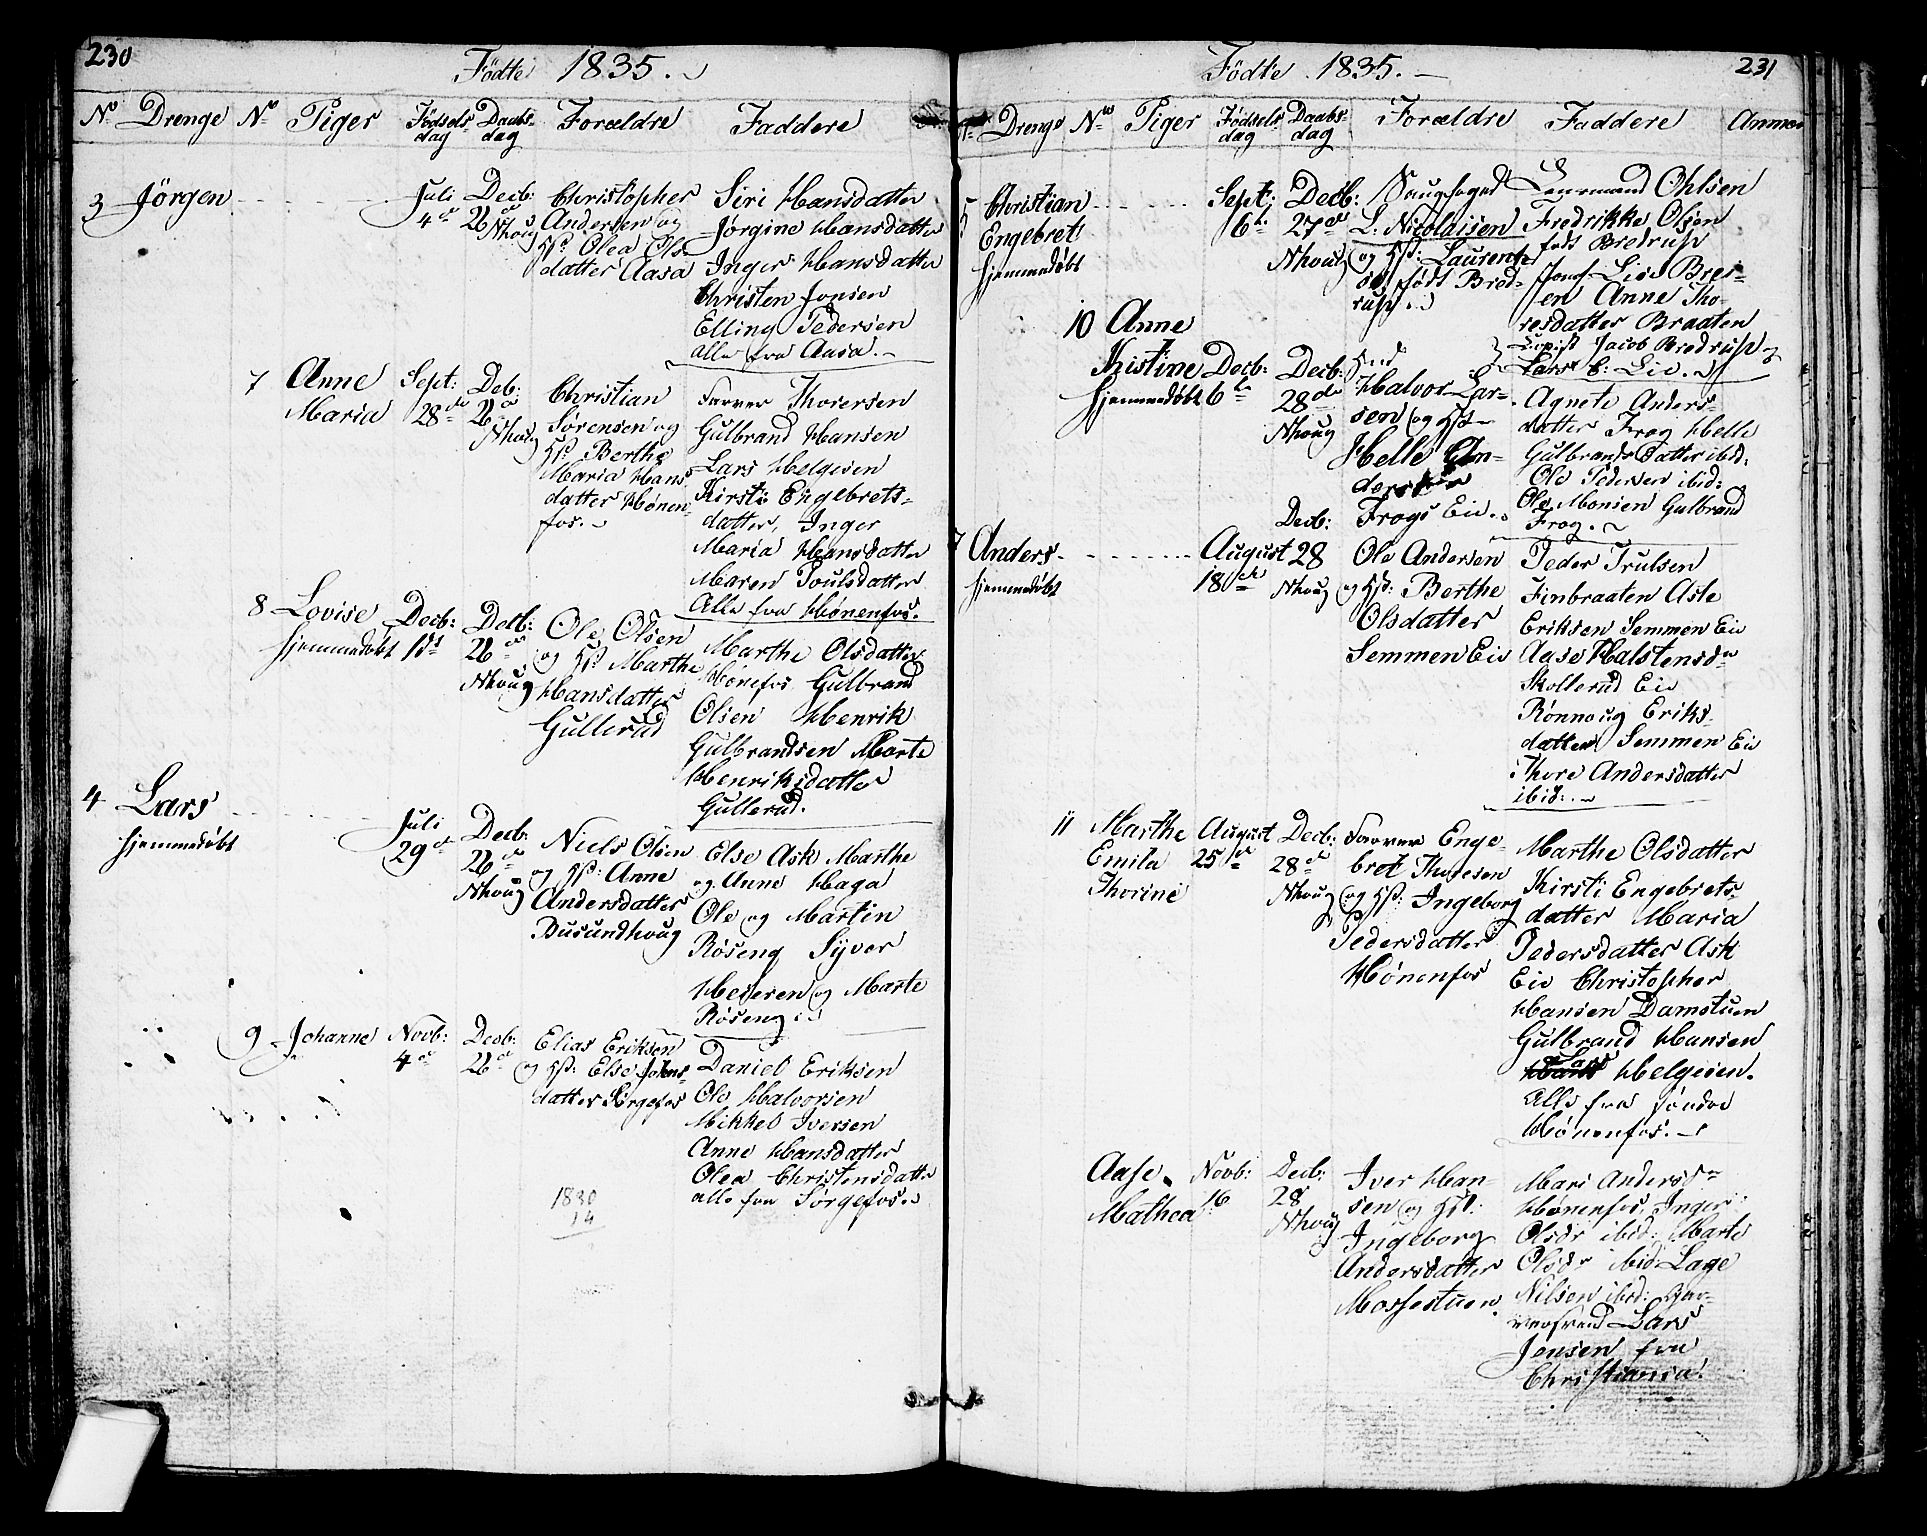 230
Födte 1835.
No Drenge No Piger Fødsels dag Daabs dag Forældre Faddere
3 Jörgen Juli 4de Decb: 26de Nhoug
Christopher
Andersen og
Hst: Olea Ols
datter Aasa
Siri Hansdatter
Jørgine Hansdatter
Inger Hansdatter
Christen Jonsen
Elling Pedersen
alle fra Aasa.
7 Anne Maria Sept: 28de Deb: 26de Nhoug
Christian
Sørensen og
Hst: Berthe
Maria Hans
datter Hønen
fos.
Farver Thoresen
Gulbrand Hansen
Lars Helgesen
Kirsti Engebrets-
datter, Inger
Maria Hansdatter
Maren Poulsdatter
Alle fra Hønenfos.
8 Lovise hjemmedøbt Decb: 1st Decb: 26de Nhoug
Ole Olsen
og Hst: Marthe
Hansdatter
Gullerud
Marthe Olsdatter
Hønefos Gulbrand
Olsen Henrik
Gulbrandsen Marte
Henriksdatter
Gullerud.
4 Lars hjemmedøbt Juli 29de Decb: 26de Nhoug
Niels Olsen
og Hst: Anne
Andersdatter
Busundhoug
Else Ask Marthe
og Anne Haga
Ole og Martin
Røseng Syver
Heieren og Marte
Røseng
9 Johanne Novb: 4de Decb: 26de
Elias Eriksen
og Hst: Else Johns-
datter Sörgefos
Daniel Eriksen
Ole Halvorsen
Mikkel Iversen
Anne Hansdatter
Olea Christensdatter
alle fra Sörgefos.
1830
14
231
Födte 1835.
Drenge No Piger Fødsels dag Daabs dag Forældre Faddere Anmær
5 Christian Engebret hjemmedøbt Sept: 6te Decb: 27de Nhoug
Saugfoged
L. Nicolaisen
og Hst: Laurentze
født Bred-
rup
Lensmand Ohlsen
Fredrikke Olsen
født Bredrup
Jomf Lise Brer-
en Anne Tho-
resdatter Braaten
Copist Jacob Bredrup
Lars C: Lie.
10 Anne Kistine hjemmedøbt Decb: 6te Decb: 28de Nhoug
Halvor Lar-
sen og Hst:
Helle An-
Frogs Eie.
Agnete Anders-
datter Frog Helle
Gulbrandsdatter ibid:
Ole Pedersen ibid:
Ole Monsen Gulbrand
Frog.
7 Anders hjemmedøbt August 18de Decb: 28 Nhoug
Ole Andersen
og Hst: Berthe
Olsdatter
Semmen Eie
Peder Trulsen
Finbraaten Asle
Eriksen Semmen Eie
Aase Halstensdr
Skollerud Eie
Rønnoug Eriks
datter Semmen Eie
Thore Andersdatter
ibid:
11 Marthe Emila Thorine August 25de Decb: 28de Nhoug
Farver Enge-
bret Thoresen
og Hst: Ingeborg
Pedersdatter
Hönenfos
Marthe Olsdatter
Kirsti Engebrets
datter Maria
Pedersdatter Ask
Eie Christopher
Hansen Damstuen
Gulbrand Hansen
Lars
Helgesen.
Alle fra søndre
Hönenfos.
Aase Mathea Novb: 16 Decb: 28 Nhoug
Iver Han
sen og Hst:
Ingeborg
Andersdatter
Mossestuen
Mari Andersdr
Hönenfos, Inger
Olsdr ibid: Marte
Olsdr ibid: Lage
Nilsen ibid: Gar-
versvend Lars
Jensen fra
Christiania.